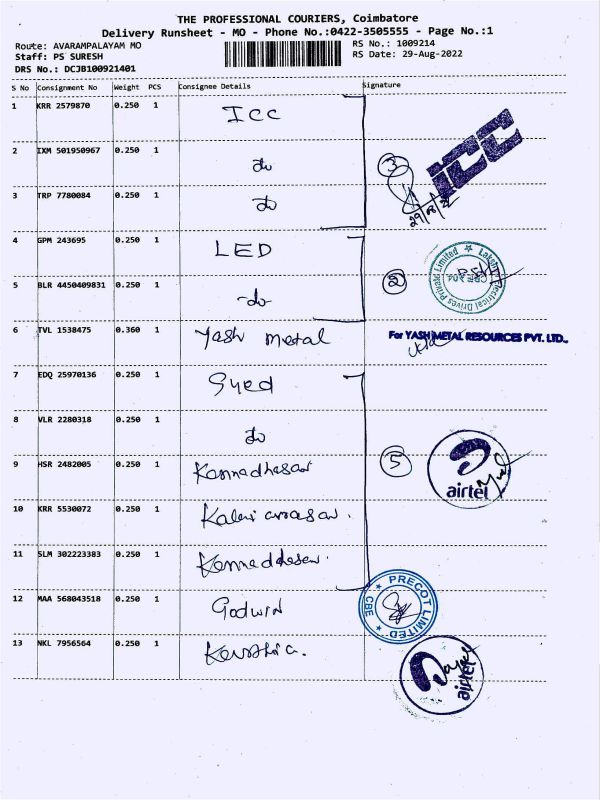 THE PROFESSIONAL COURIERS, Coimbatore
Delivery Runsheet - MO - Phone No.:0422-3505555 - Page No.:1
Route: AVARAMPALAYAM MO
RS No.: 1009214
Staff: PS SURESH
RS Date: 29-Aug-2022
DRS No.: DCJB100921401
S No Consignment No Weight PCS Consignee Details Signature
1 KRR 2579870 0.250 1 ICC
ICC
2 IXM 501950967 0.250 1 do
3
3 TRP 7780084 0.250 1 do
29/08/22
4 GPM 243695 0.250 1 LED
Lakshmi Electrical Drives Private Limited
2
5 BLR 4450409831 0.250 1 -do-
6 TVL 1538475 0.360 1 Yash metal
For YASH METAL RESOURCES PVT. LTD.,
7 EDQ 25970136 0.250 1 Syed
8 VLR 2280318 0.250 1 do
9 HSR 2482005 0.250 1 Kannadhasan
5
airtel
10 KRR 5530072 0.250 1
11 SLM 302223383 0.250 1
12 MAA 568043518 0.250 1 Godwin
PRECOT LIMITED
CBE
13 NKL 7956564 0.250 1
airtel